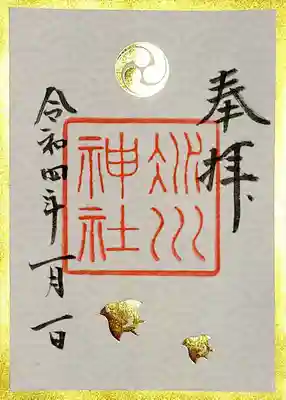 奉拝
冰川
神社
令和四年一月一日